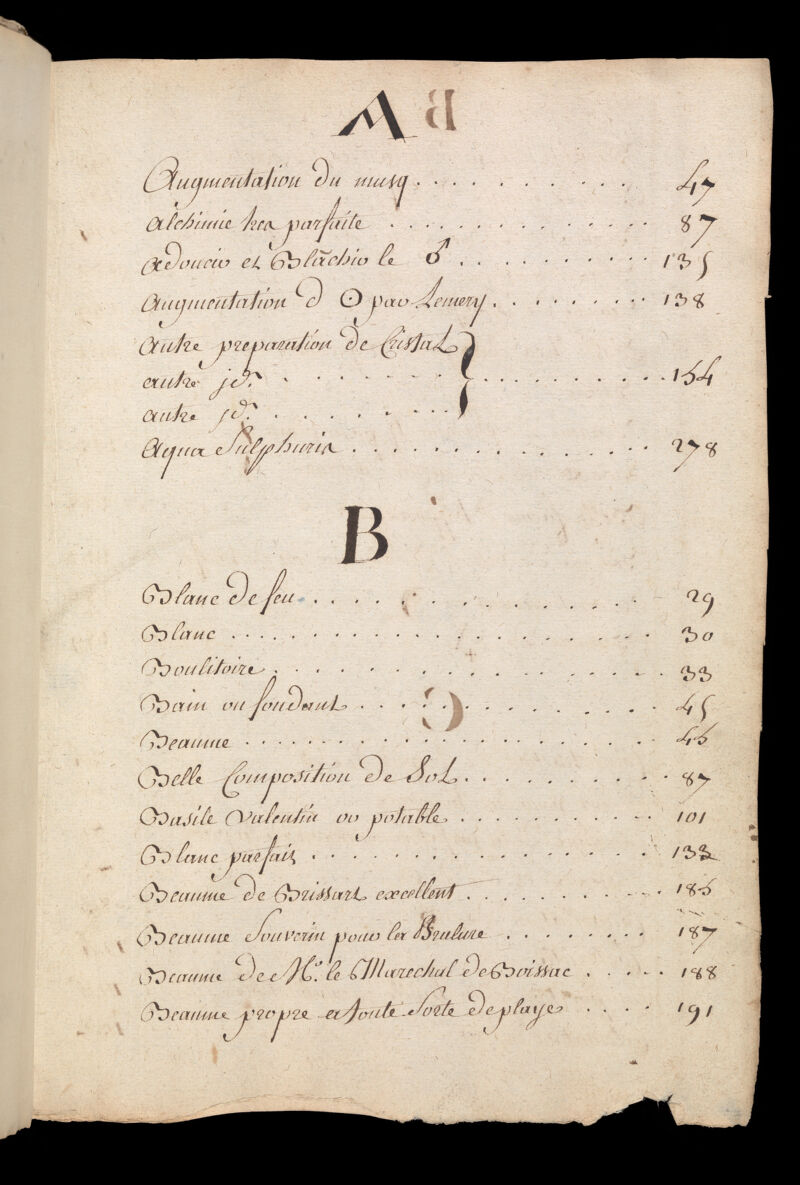 A
Augmentation du musq . . . . . . . . . 47
alchimie tres parfaite . . . . . . . . . . . 87
adoucir et Blãchir le ♂ . . . . . . . . . . 135
augmentation d ☉ par Lemery . . . . . . . 138
autre preparation de Cristal
autre jd. . . . . . . . } . . . . . . . . . 154
autre jd. . . . . . . .
aqua Sulphuris . . . . . . . . . . . . . 278
B
Blanc de feu . . . . . . . . . . . . 29
Blanc . . . . . . . . . . . . . . . . 30
Boulitoire . . . . . . . . . . . . . . 33
Bain ou fondant . . . . . . . . . . . . 45
Beaume . . . . . . . . . . . . . . . . 46
Belle Composition de Sol . . . . . . . . 87
Basile Valentin or potable . . . . . . . . 101
Blanc parfait . . . . . . . . . . . . . 133
Beaume de Brissart excellent . . . . . . . . 186
Beaume Souverin pour la Brulure . . . . . . 187
Beaume de Mr. le Marechal de Boissac . . . . . 188
Beaume propre a toute Sorte de playe . . . . 191